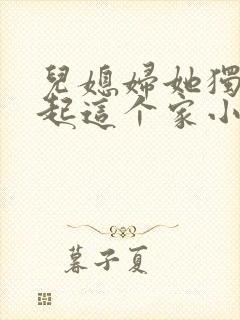 兒媳婦她獨
起這个家小
暮子夏